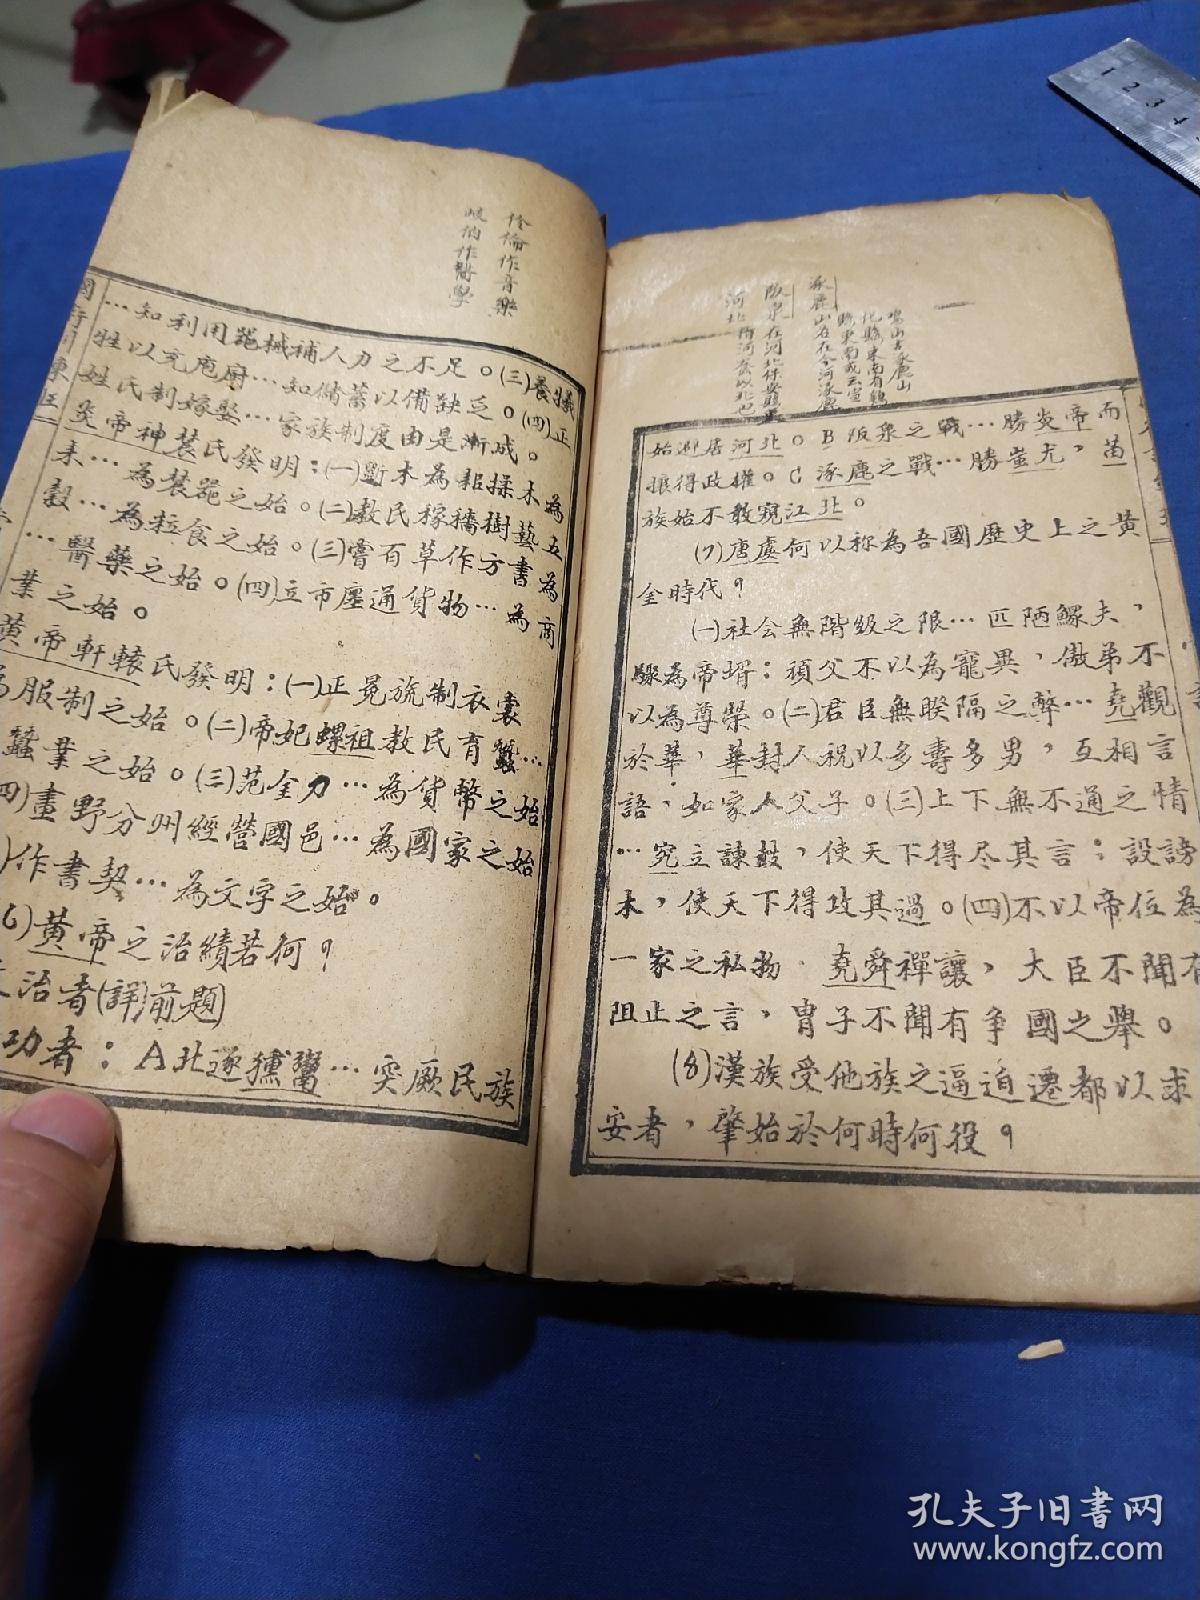 伶倫作音樂
岐伯作醫學
…知利用器械補人力之不足。(三)養犧
牲以充庖廚…知儲蓄以備缺乏。(四)正
姓氏制嫁娶…家族制度由是漸成。
炎帝神農氏發明：(一)斲木為耜揉木為
耒…為農器之始。(二)教民稼穡樹藝五
穀…為粒食之始。(三)嘗百草作方書為
…醫藥之始。(四)立市廛通貨物…為商
業之始。
黃帝軒轅氏發明：(一)正冕旒制衣裳
為服制之始。(二)帝妃螺祖教民育蠶…
蠶業之始。(三)范金刀…為貨幣之始
四)畫野分州經營國邑…為國家之始
)作書契…為文字之始。
6)黃帝之治績若何？
治者(詳)前題)
功者：A北逐獯鬻…突厥民族
涿鹿山在
阪泉在河北保安縣
河北指河套以北也
始邇居河北。B阪泉之戰…勝炎帝而
攘得政權。C涿鹿之戰…勝蚩尤，苗
族始不敢窺江北。
(7)唐虞何以称為吾國歷史上之黃
金時代？
(一)社会無階級之限…匹陋鰥夫，
驟為帝壻：頑父不以為寵異，傲弟不
以為尊榮。(二)君臣無暌隔之弊…堯觀
於華，華封人祝以多壽多男，互相言
語，如家人父子。(三)上下無不通之情
…究立諫鼓，使天下得尽其言；設謗
木，使天下得攻其過。(四)不以帝位為
一家之私物．堯舜禪讓，大臣不聞有
阻止之言，冑子不聞有爭國之舉。
(8)漢族受他族之逼迫遷都以求
安者，肇始於何時何役？
1 2 3 4
孔夫子旧書网
www.kongfz.com